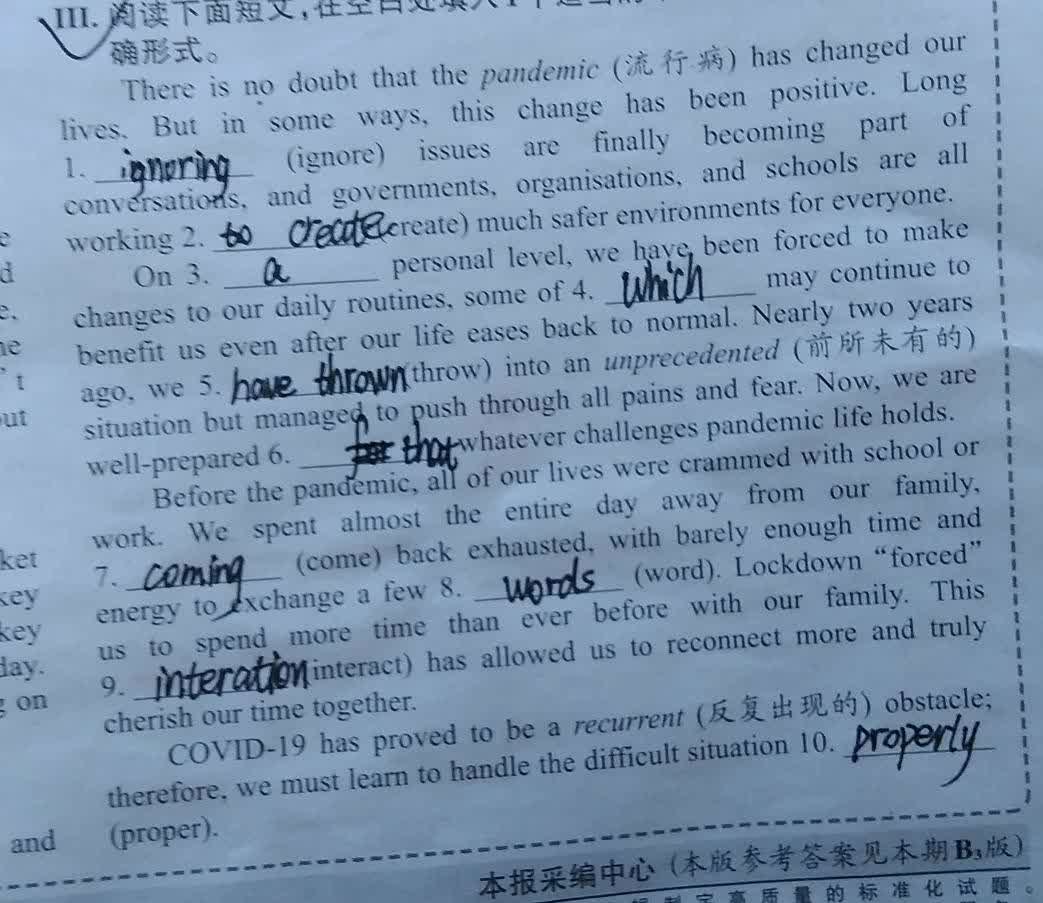 III. 阅读下面短文,在空白处填入1个适当的
确形式。
There is no doubt that the pandemic (流行病) has changed our
lives. But in some ways, this change has been positive. Long
1. ignoring (ignore) issues are finally becoming part of
conversations, and governments, organisations, and schools are all
working 2. to create(create) much safer environments for everyone.
On 3. a personal level, we have been forced to make
changes to our daily routines, some of 4. which may continue to
benefit us even after our life eases back to normal. Nearly two years
ago, we 5. have thrown(throw) into an unprecedented (前所未有的)
situation but managed to push through all pains and fear. Now, we are
well-prepared 6. that whatever challenges pandemic life holds.
Before the pandemic, all of our lives were crammed with school or
work. We spent almost the entire day away from our family,
7. coming (come) back exhausted, with barely enough time and
energy to exchange a few 8. words (word). Lockdown “forced”
us to spend more time than ever before with our family. This
9. interation(interact) has allowed us to reconnect more and truly
cherish our time together.
COVID-19 has proved to be a recurrent (反复出现的) obstacle;
therefore, we must learn to handle the difficult situation 10. properly
(proper).
e
d
e,
ne
t
out
ket
key
key
day.
g on
and
本报采编中心 (本版参考答案见本期B₃版)
高质量的标准化试题。